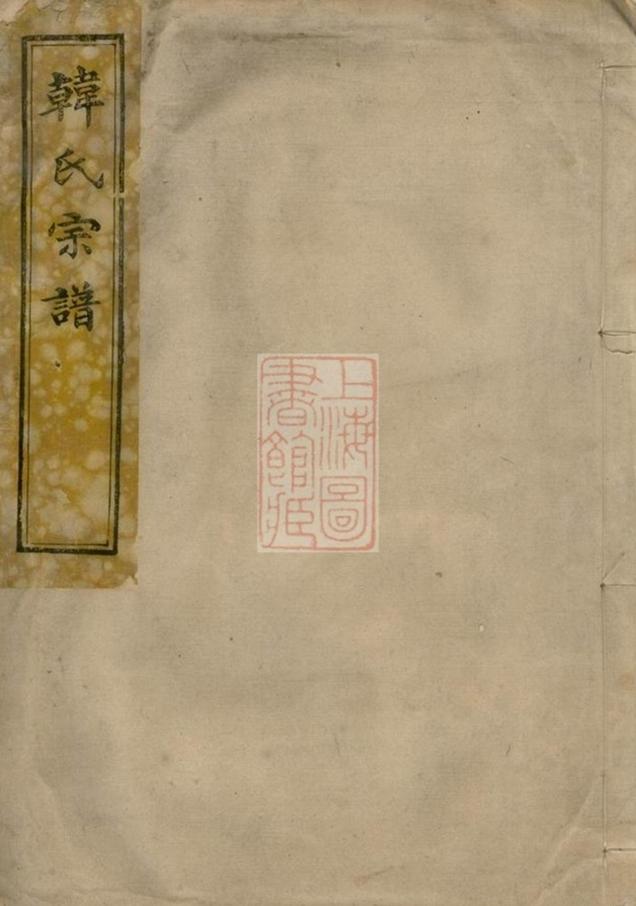 韓氏宗譜
上海圖
書館藏